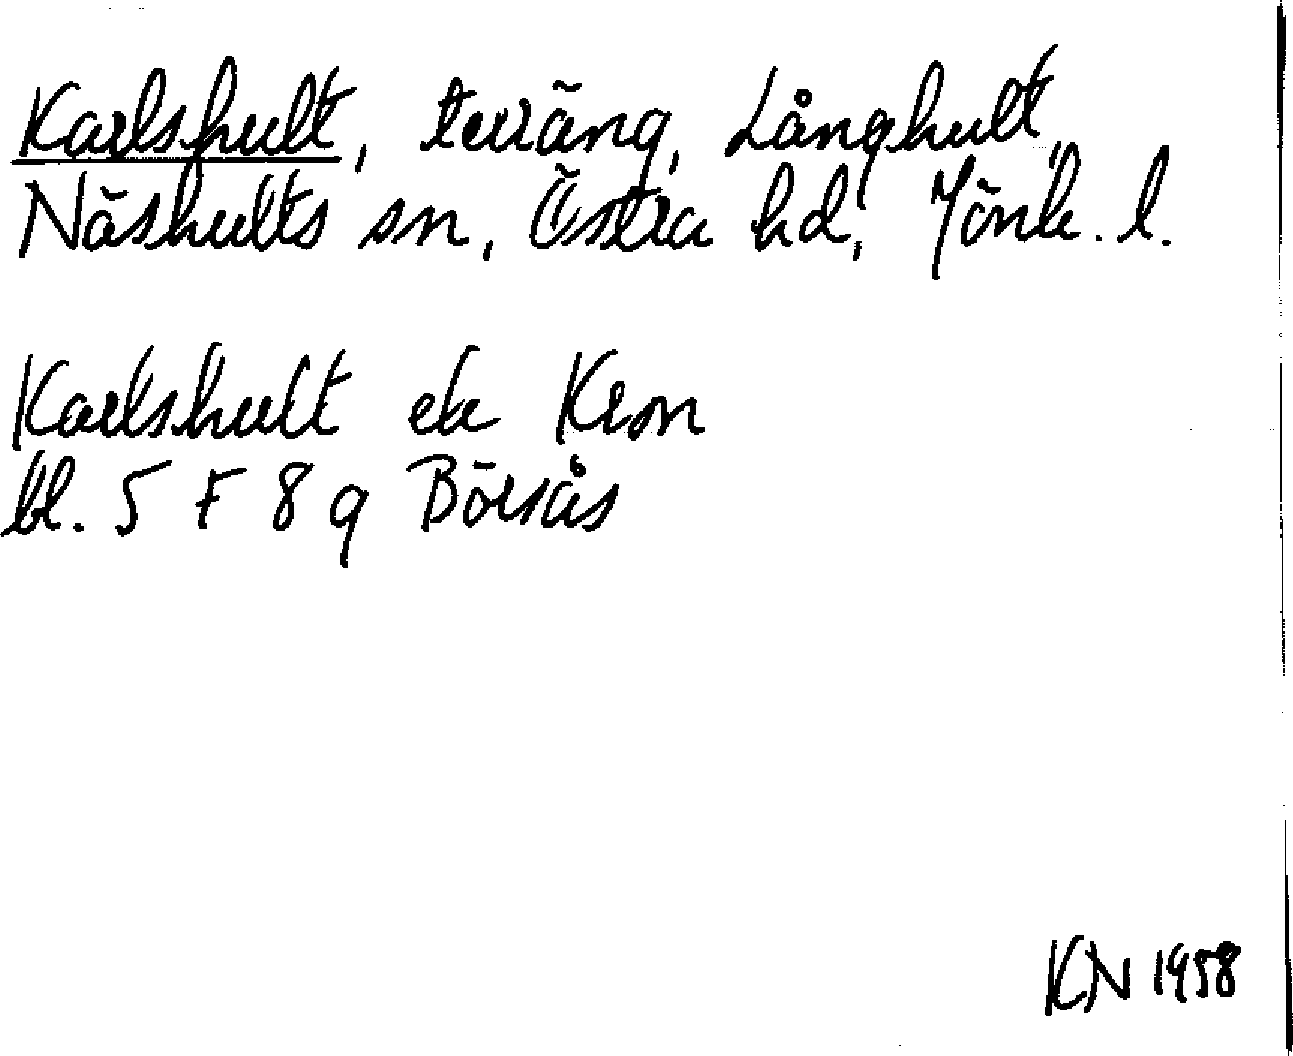 Karlshult, terräng, Långhult,
Näshults sn, Östra hd, Jönk. l.
Karlshult ek Kron
bl. 5 F 8 g Börsås
KN 1958